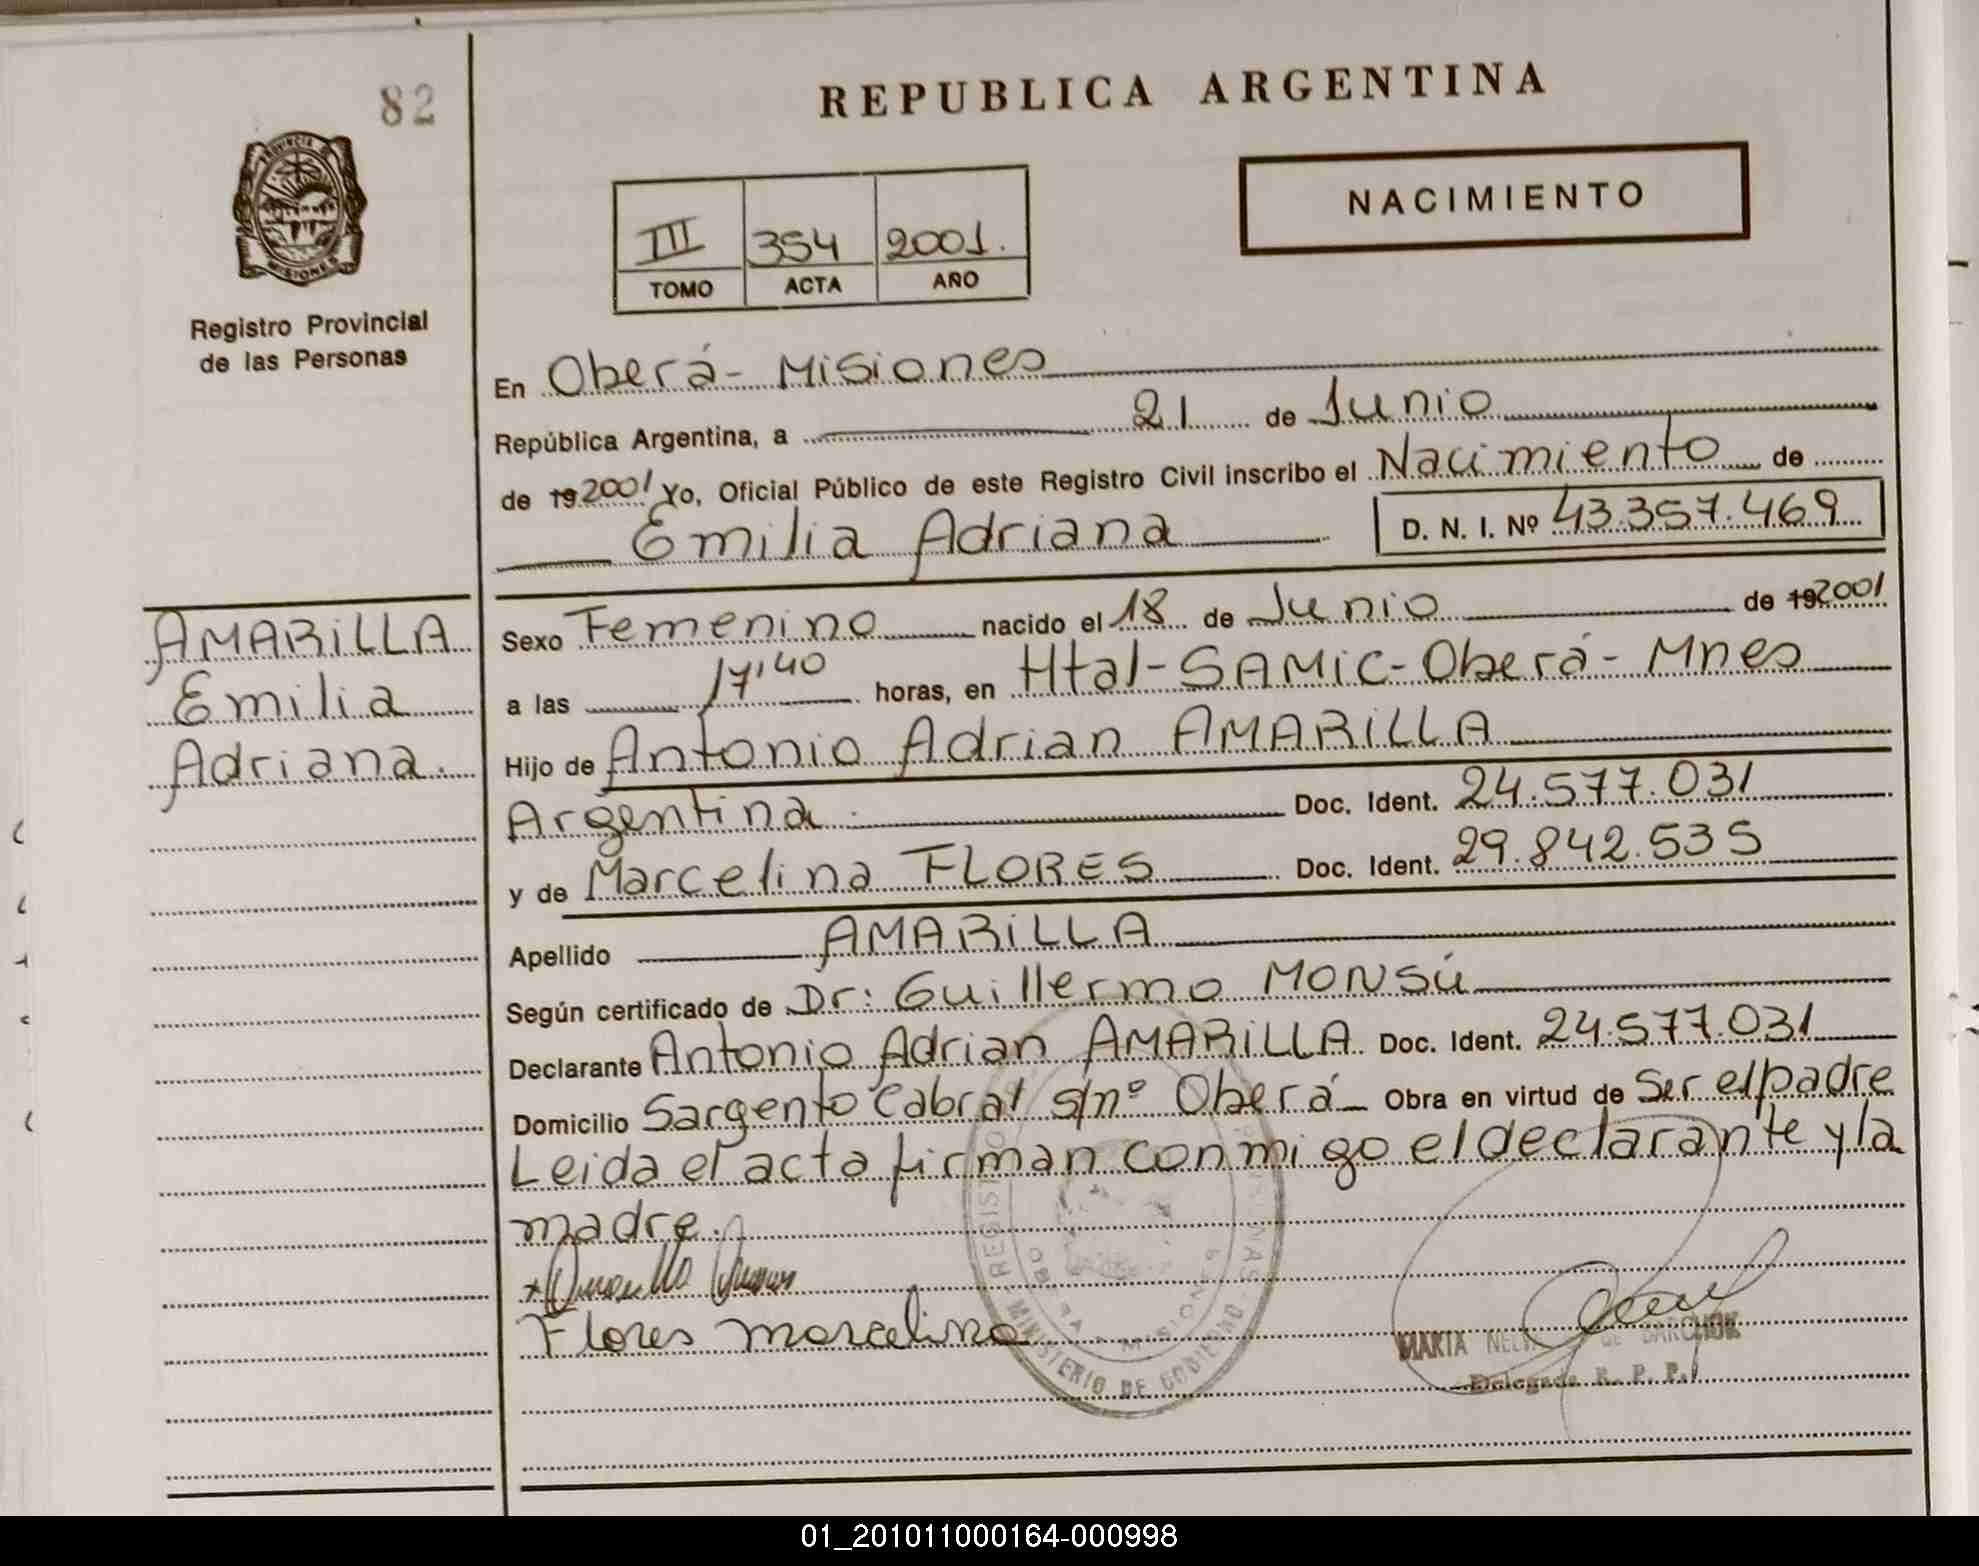 82
REPUBLICA ARGENTINA
NACIMIENTO
III 354 2001.
TOMO ACTA AÑO
PROVINCIA DE
MISIONES
Registro Provincial
de las Personas
En Oberá - Misiones
República Argentina, a 21 de Junio
de 19 2001 Yo, Oficial Público de este Registro Civil inscribo el Nacimiento de
Emilia Adriana D. N. I. Nº 43.357.469
AMARILLA
Emilia
Adriana.
Sexo Femenino nacido el 18 de Junio de 19 2001
a las 17'40 horas, en Htal-SAMIC-Oberá-Mnes
Hijo de Antonio Adrian AMARILLA
Argentina. Doc. Ident. 24.577.031
y de Marcelina FLORES Doc. Ident. 29.842.535
Apellido AMARILLA
Según certificado de Dr: Guillermo MONSÚ
Declarante Antonio Adrian AMARILLA Doc. Ident. 24.577.031
Domicilio Sargento Cabral s/nº Oberá Obra en virtud de Ser el padre
Leida el acta firman conmigo el declarante y la
madre.
Flores marcelina
MARIA
Delegada R. P. P.
MINISTERIO DE GOBIERNO
OBERA - MISIONES
01_201011000164-000998